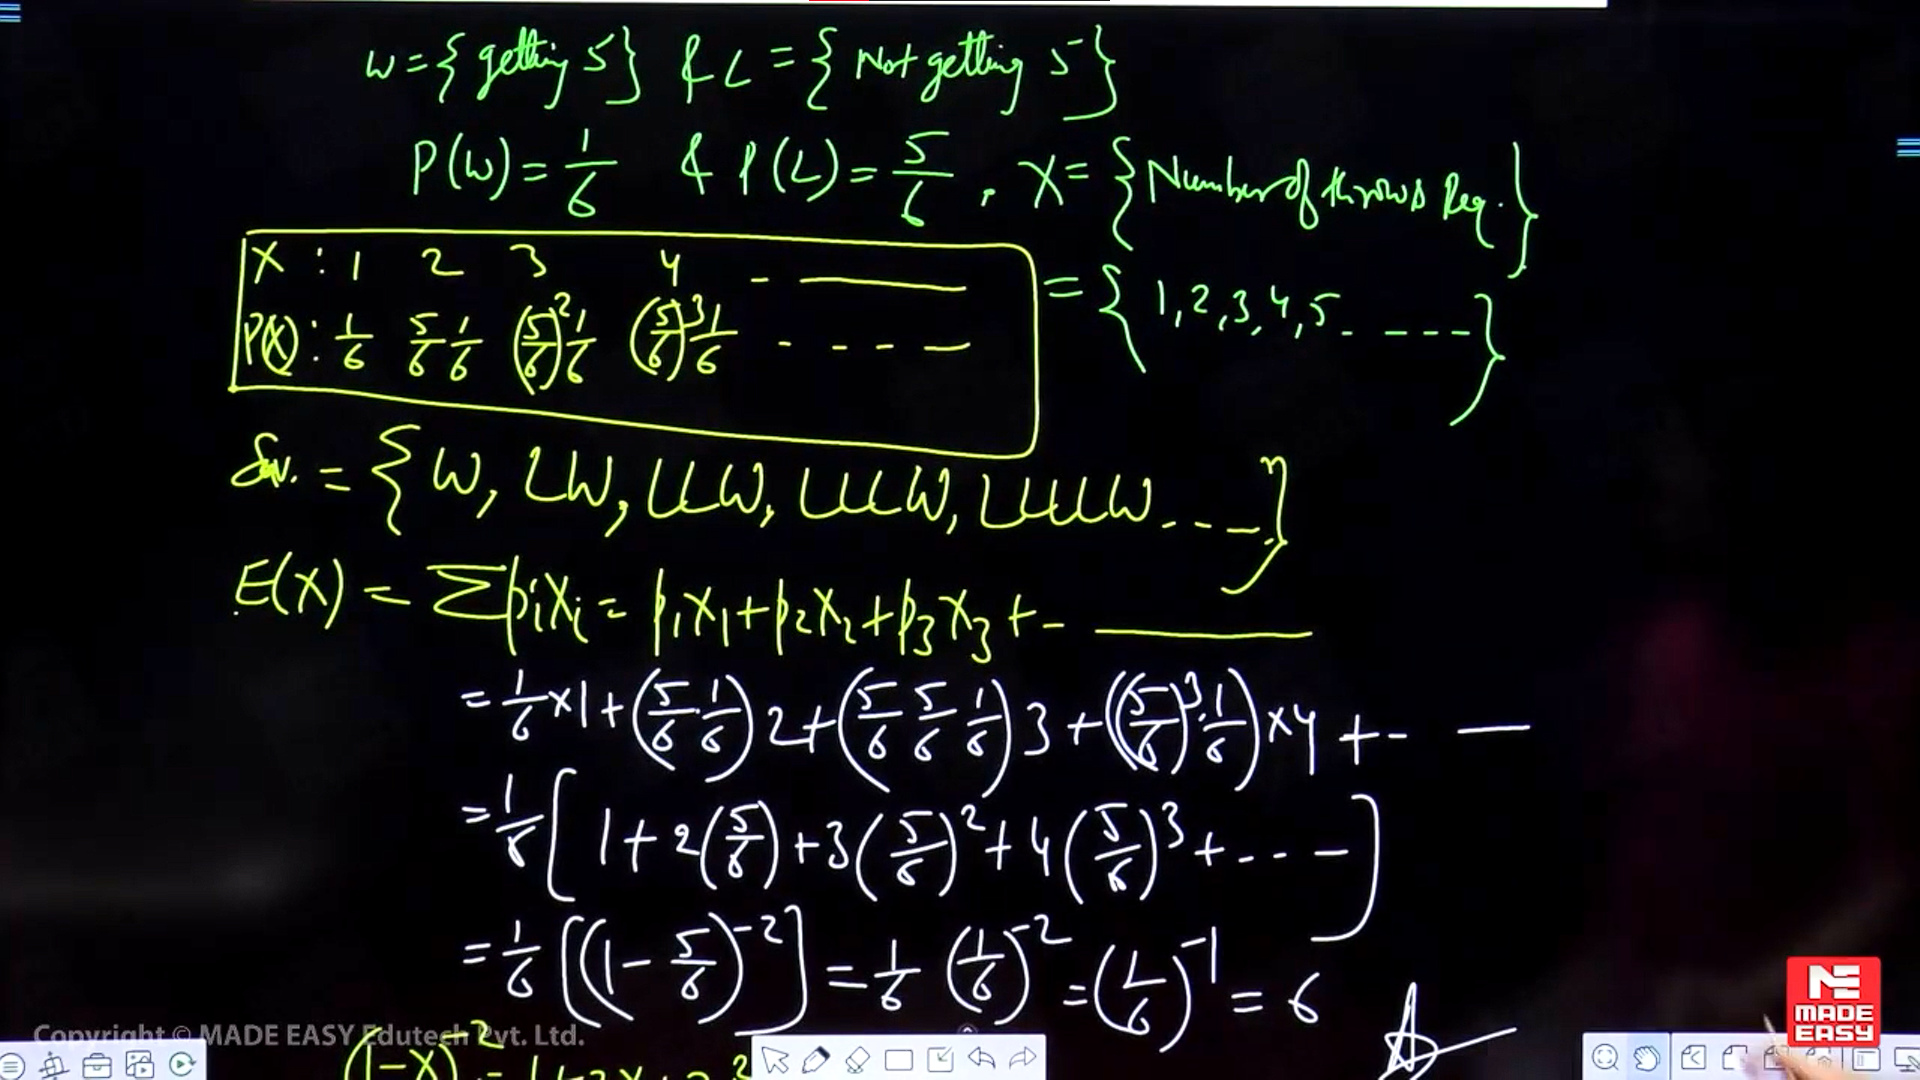 W = {getting 5} & L = {Not getting 5}
P(W) = 1/6 & P(L) = 5/6, X = {Number of throws Req.}
= {1, 2, 3, 4, 5 - - - -}
X : 1 2 3 4 - ———
P(X) : 1/6 5/6 1/6 (5/6)^2 1/6 (5/6)^3 1/6 - - - —
= {W, LW, LLW, LLLW, LLLLW - - -}
E(X) = Σ pi xi = p1x1 + p2x2 + p3x3 + - ———
= 1/6 × 1 + (5/6 · 1/6) 2 + (5/6 5/6 1/6) 3 + ((5/6)^3 · 1/6) × 4 + - —
= 1/6 [1 + 2(5/6) + 3(5/6)^2 + 4(5/6)^3 + - - -]
= 1/6 [(1 - 5/6)^-2] = 1/6 (1/6)^-2 = (1/6)^-1 = 6
Copyright © MADE EASY Edutech Pvt. Ltd.
ME
MADE
EASY